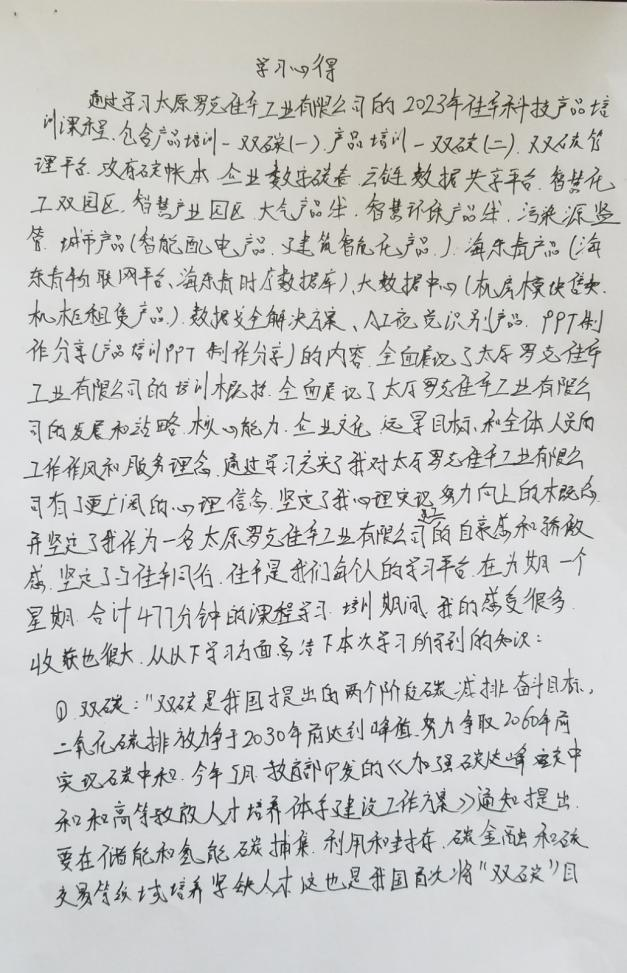 学习心得
通过学习太原罗克佳华工业有限公司的2023年佳华科技产品培
训课程,包含产品培训-双碳(一).产品培训-双碳(二).双碳管
理平台.政府碳帐本.企业数字碳卷.云链数据共享平台.智慧化
工双园区.智慧产业园区.大气产品线.智慧环保产品线.污染源监
管.城市产品(智能配电产品.建筑智能化产品.).海东青产品(海
东青物联网平台、海东青时序数据库)、大数据中心(机房模块售卖.
机柜租赁产品).数据安全解决方案、AI视觉识别产品.PPT制
作分享(产品培训PPT制作分享)的内容.全面展记了太原罗克佳华
工业有限公司的培训.全面展记了太原罗克佳华工业有限公
司的发展和战略.核心能力.企业文化.远景目标、和全体人员的
工作作风和服务理念.通过学习充实了我对太原罗克佳华工业有限公
司有了更广阔的心理信念.坚定了我心理实现努力向上的
并坚定了我作为一名太原罗克佳华工业有限公司员工的自豪感和骄傲
感.坚定了与佳华同行.佳华是我们每个人的学习平台.在为期一个
星期.合计477分钟的课程学习.培训期间.我的感受很多.
收获也很大.从以下学习方面总结下本次学习所学到的知识:
① 双碳:"双碳是我国提出的两个阶段碳减排奋斗目标。
二氧化碳排放力争于2030年前达到峰值.努力争取2060年前
实现碳中和.今年5月.教育部印发的《加强碳达峰碳中
和和高等教育人才培养体系建设工作方案》通知提出.
要在储能和氢能.碳捕集.利用和封存.碳金融和碳
交易等领域培养紧缺人才.这也是我国首次将"双碳"目